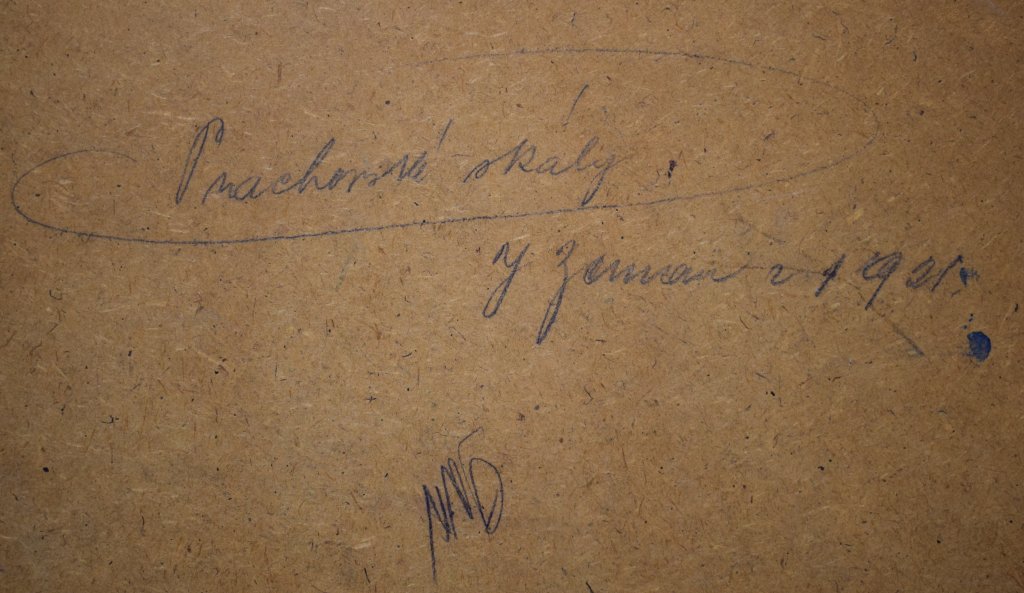 Prachovské skály
J Zeman v r 1921.